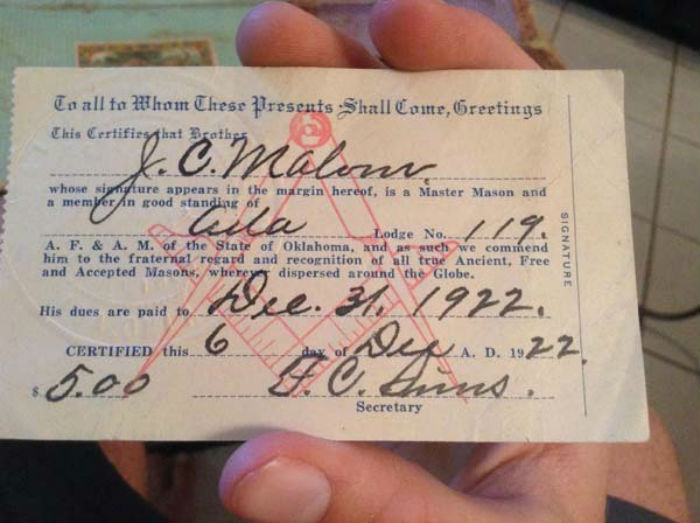 To all to Whom These Presents Shall Come, Greetings
This Certifies that Brother
J. C. Malone
whose signature appears in the margin hereof, is a Master Mason and
a member in good standing of
Ada Lodge No. 119.
A. F. & A. M. of the State of Oklahoma, and as such we commend
him to the fraternal regard and recognition of all true Ancient, Free
and Accepted Masons, wherever dispersed around the Globe.
His dues are paid to Dec. 31, 1922.
CERTIFIED this 6 day of Dec A. D. 1922.
$ 5.00 F. C. Sims.
Secretary
SIGNATURE